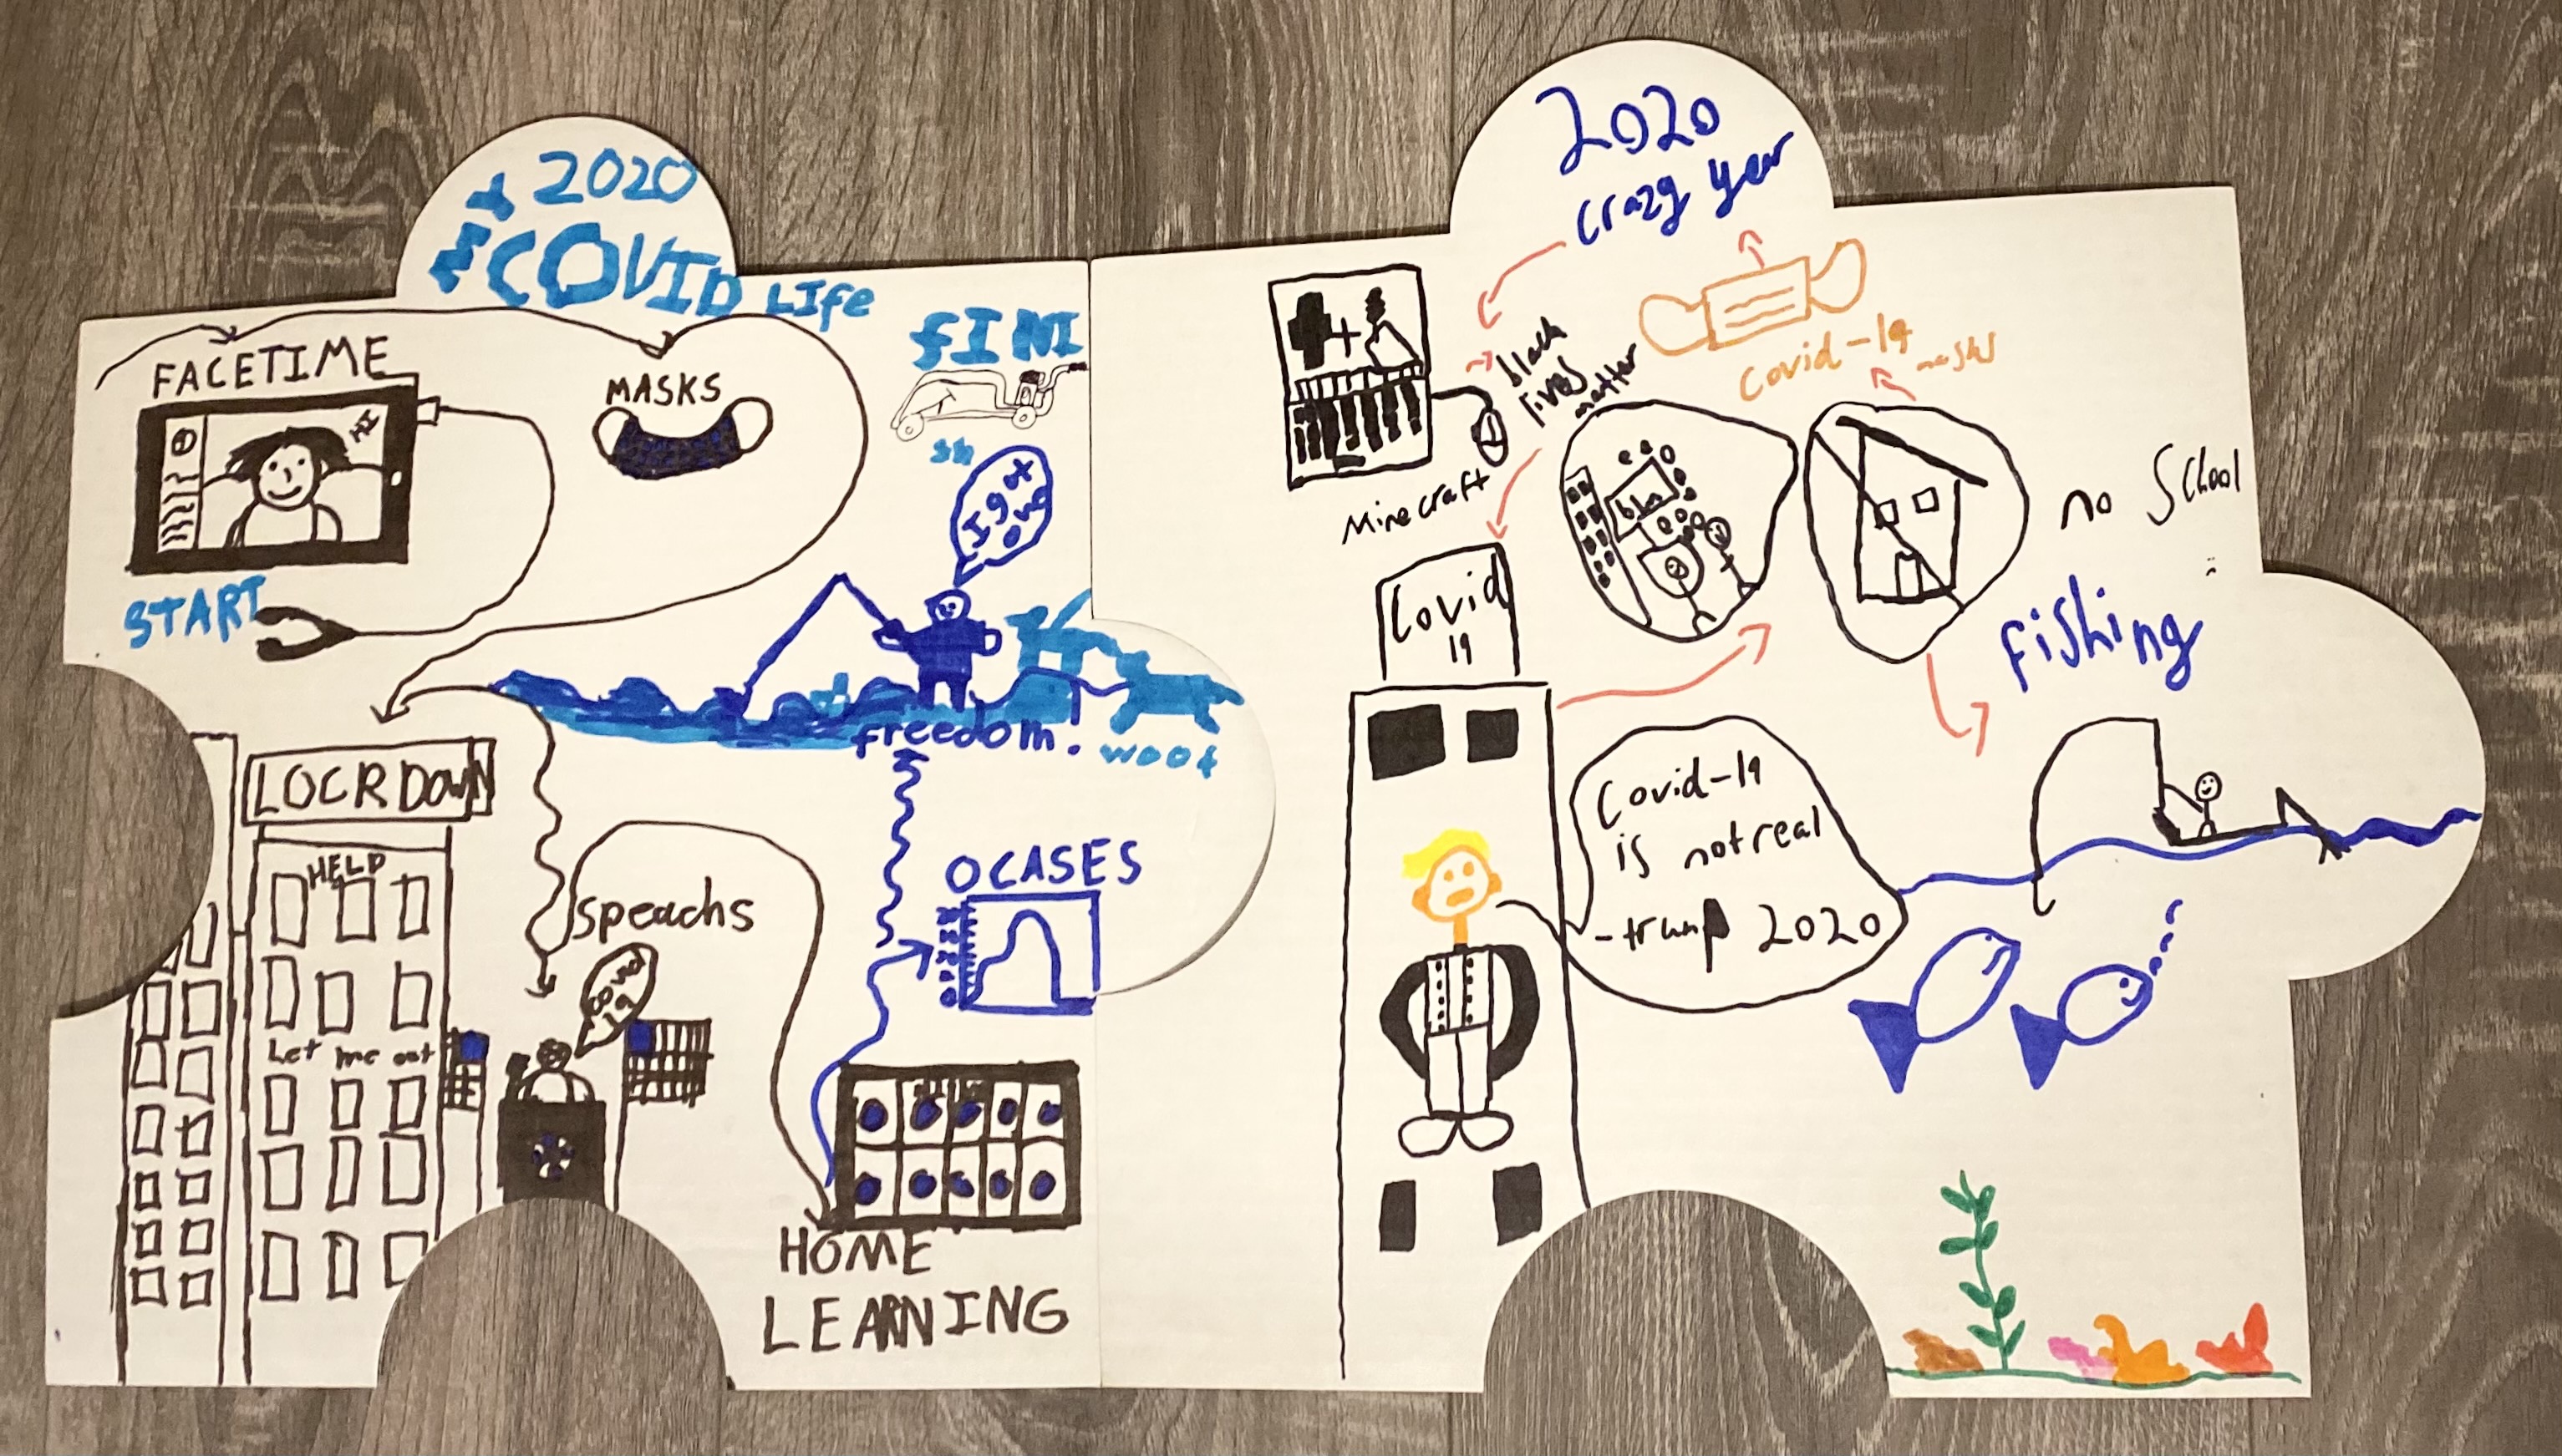 2020
MY COVID LIfe
FACETIME
HI
START
MASKS
fINI
I got
one
freedom!
woof
LOCKDOWN
HELP
Let me out
Speachs
COVID
19
0 CASES
HOME
LEARNING
2020
crazy year
Minecraft
black
lives
matter
Covid-19
masks
blm
no School
Covid
19
fishing
Covid-19
is not real
-trump 2020